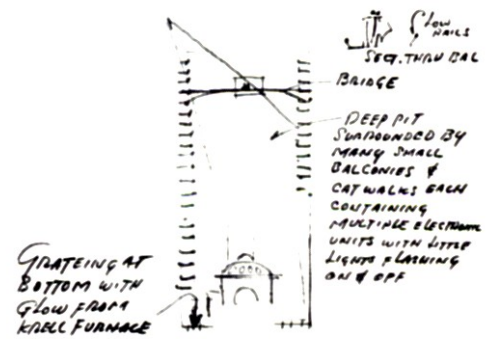 GLOW
RAILS
SECT. THRU BAL
BRIDGE
DEEP PIT
SURROUNDED BY
MANY SMALL
BALCONIES &
CATWALKS EACH
CONTAINING
MULTIPLE ELECTRONIC
UNITS WITH LITTLE
LIGHTS FLASHING
ON & OFF
GRATEING AT
BOTTOM WITH
GLOW FROM
KRELL FURNACE